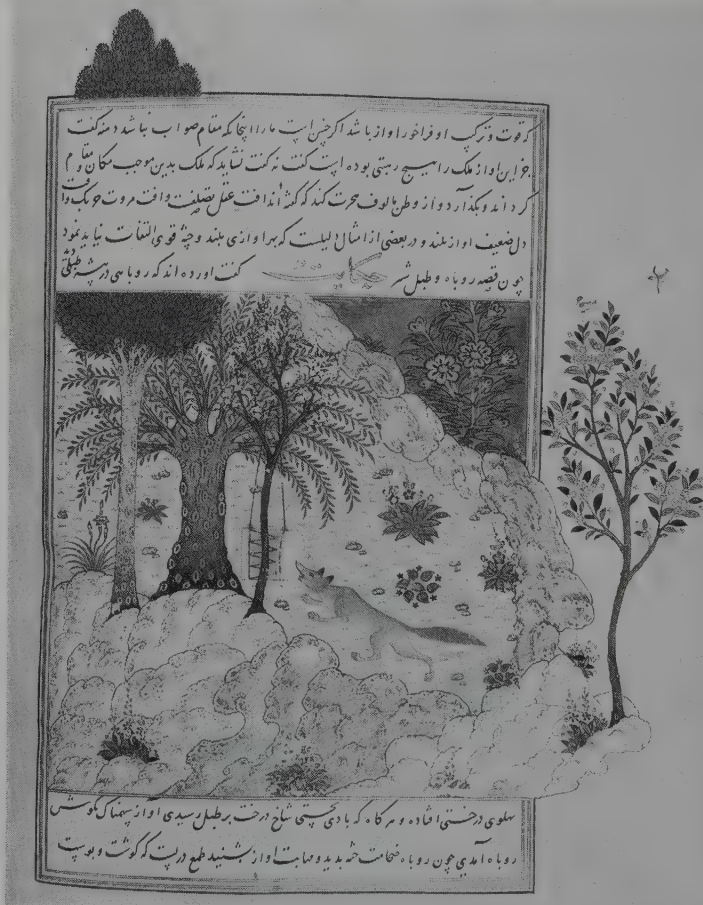 که قوت و ترکیب او فراخور آواز باشد اگر چنین است ما را اینجا که مقام صواب نباشد دمنه گفت
جز این آواز ملک را هیچ ریبتی بوده است گفت نه گفت نشاید که ملک بدین موجب مکان و مقام
کرداند و بگذارد و از وطن مالوف حرت کند که گفته اند افت عقل تصلفت و افت مروت
دل ضعیف اواز بلند و در بعضی از امثال دلیلست که بهر اوازی بلند و جثه قوی التفات نباید نمود
چون قصه روباه و طبل شر حکایت گفت اورده اند که روباهی در بیشه طبلی
پهلوی درختی افتاده و هر گاه که بادی بجستی شاخ درخت بر طبل رسیدی اواز سهمناک بگوش
روباه آمدی چون روباه ضخامت جثه بدید و مهابت اواز بشنید طمع در بست که گوشت و پوست